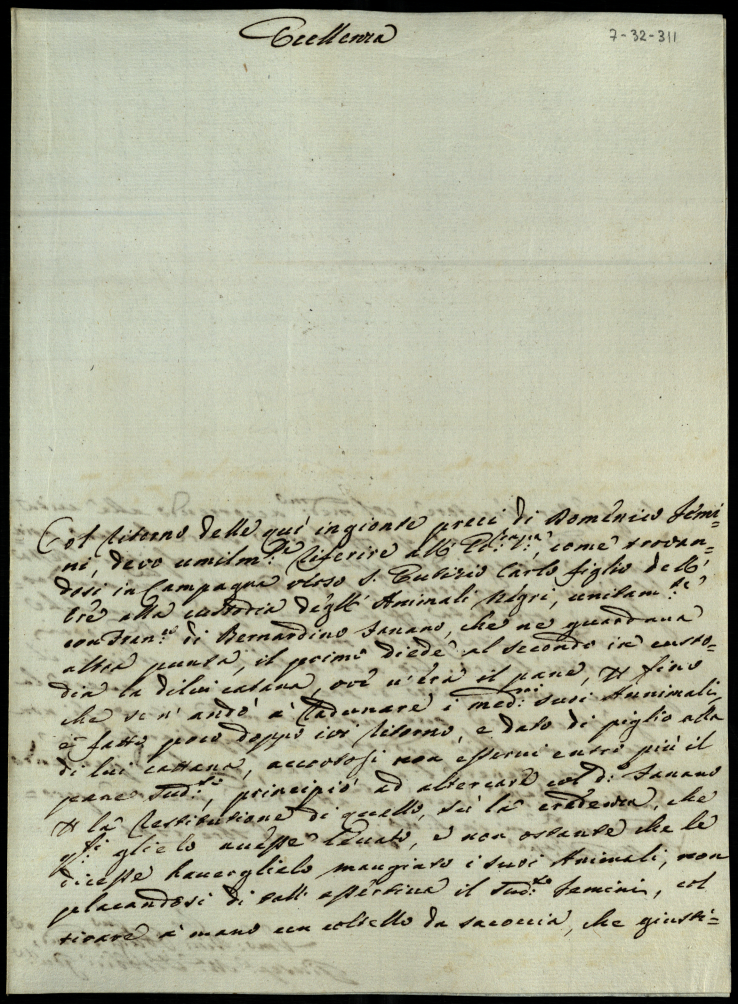 Eccellenza
7-32-311
Col ritorno delle quì ingionte preci di Domenico Femi=
ni, devo umilm.te riferire all' come trovan=
dosi in Campagna verso S. Eutizio Carlo figlio dell'
alla custodia degl' Animali Negri, unitam.te
con Fran.co di Bernardino Fanano, che ne guardava
altra punta, il primo diede al secondo in custo=
dia la di lui catana, ove v'era il pane, fino
che se n' andò à radunare i med.mi suoi Annimali,
e fatto poco doppo ivi ritorno, e dato di piglio alla
di lui cattana, accortosi non esservi entro più il
pane sud.to, principiò ad altercare col d.o Fanano
la restituzione di quello, sù la credenza, che
q.ti glie lo avesse levato, e non ostante che le
dicesse haverglielo mangiato i suoi Animali, non
placandosi di tall' assertiva il sud.to Femini, col
tirare à mano un coltello da saccoccia, che giusti=